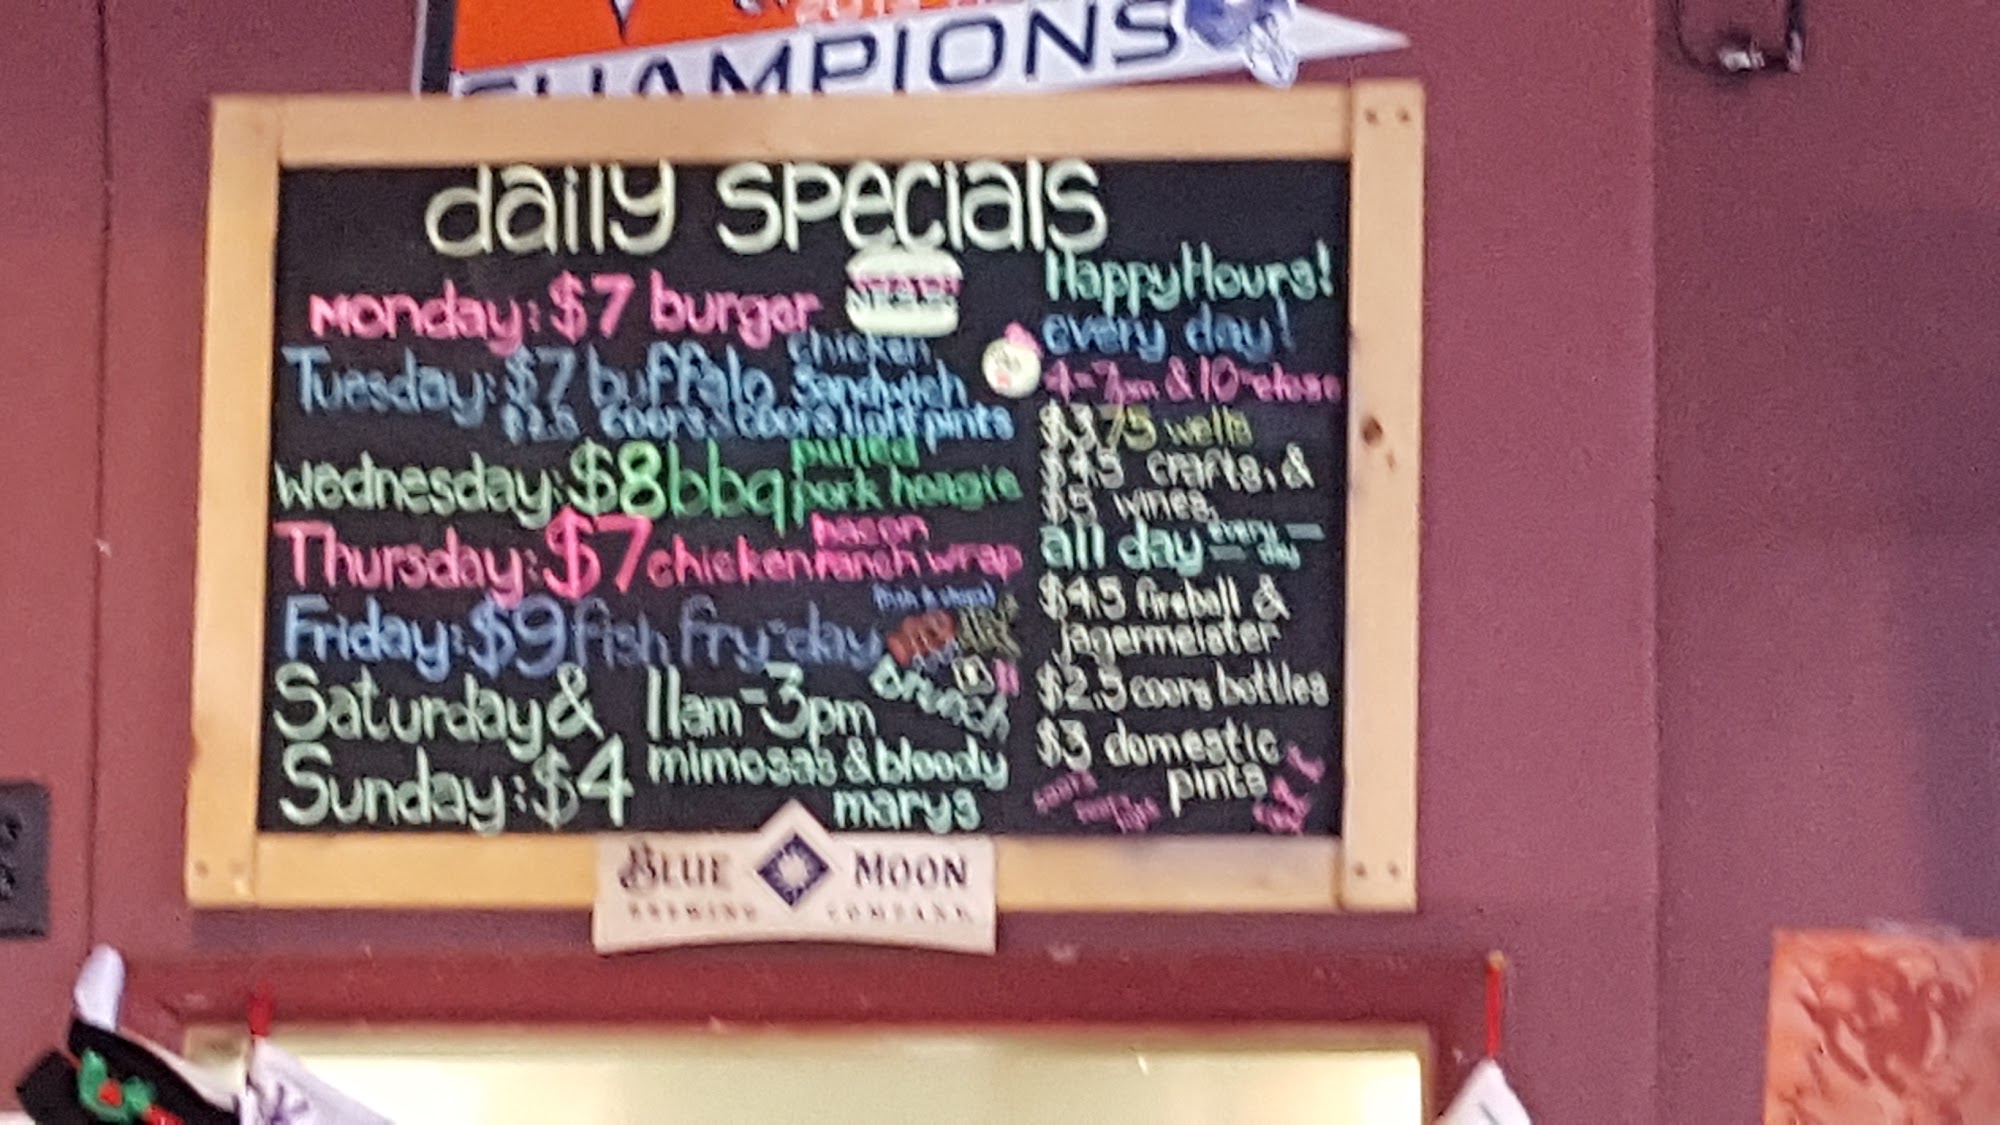 CHAMPIONS
daily specials
Monday: $7 burger
Tuesday: $7 buffalo chicken sandwich
coors & coors light pints
Wednesday: $8 bbq pulled pork hoagie
Thursday: $7 chicken bacon ranch wrap
Friday: $9 fish fry-day
Saturday & Sunday: $4
11am-3pm brunch
mimosas & bloody
marys
Happy Hours!
every day!
4-7pm & 10-close
$3.75 wells
$4.5 crafts, &
$5 wines,
all day every day
$4.5 fireball &
jagermeister
$2.5 coors bottles
$3 domestic
pints
BLUE MOON
BREWING COMPANY